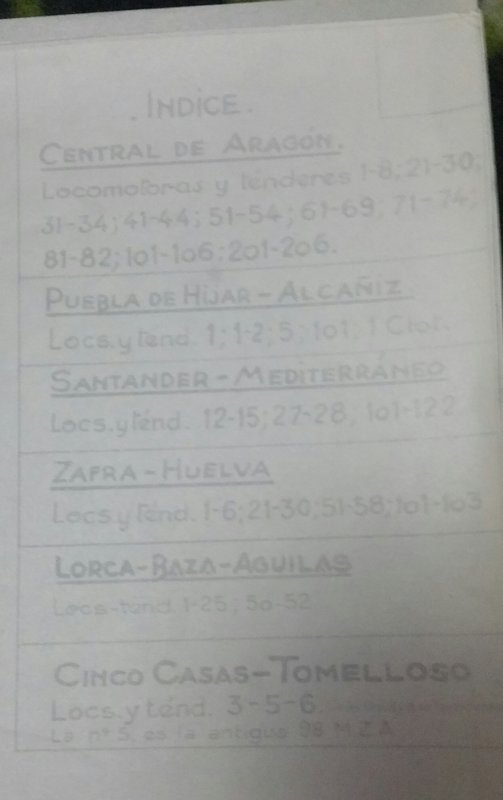 . ÍNDICE .
CENTRAL DE ARAGÓN.
Locomotoras y ténderes 1-8; 21-30;
31-34; 41-44; 51-54; 61-69; 71-74;
81-82; 1o1-1o6; 2o1-2o6.
PUEBLA DE HIJAR - ALCAÑIZ.
Locs. y tend. 1; 1-2; 5; 1o1; 1
SANTANDER - MEDITERRÁNEO
Locs. y ténd. 12-15; 27-28; 1o1-122
ZAFRA - HUELVA
Locs y Ténd. 1-6; 21-30; 51-58; 1o1-1o3
LORCA-BAZA-AGUILAS
Locs-ténd. 1-25; 5o-52
CINCO CASAS-TOMELLOSO
Locs. y ténd. 3-5-6.
La nº 5, es la antigua 98 M Z A